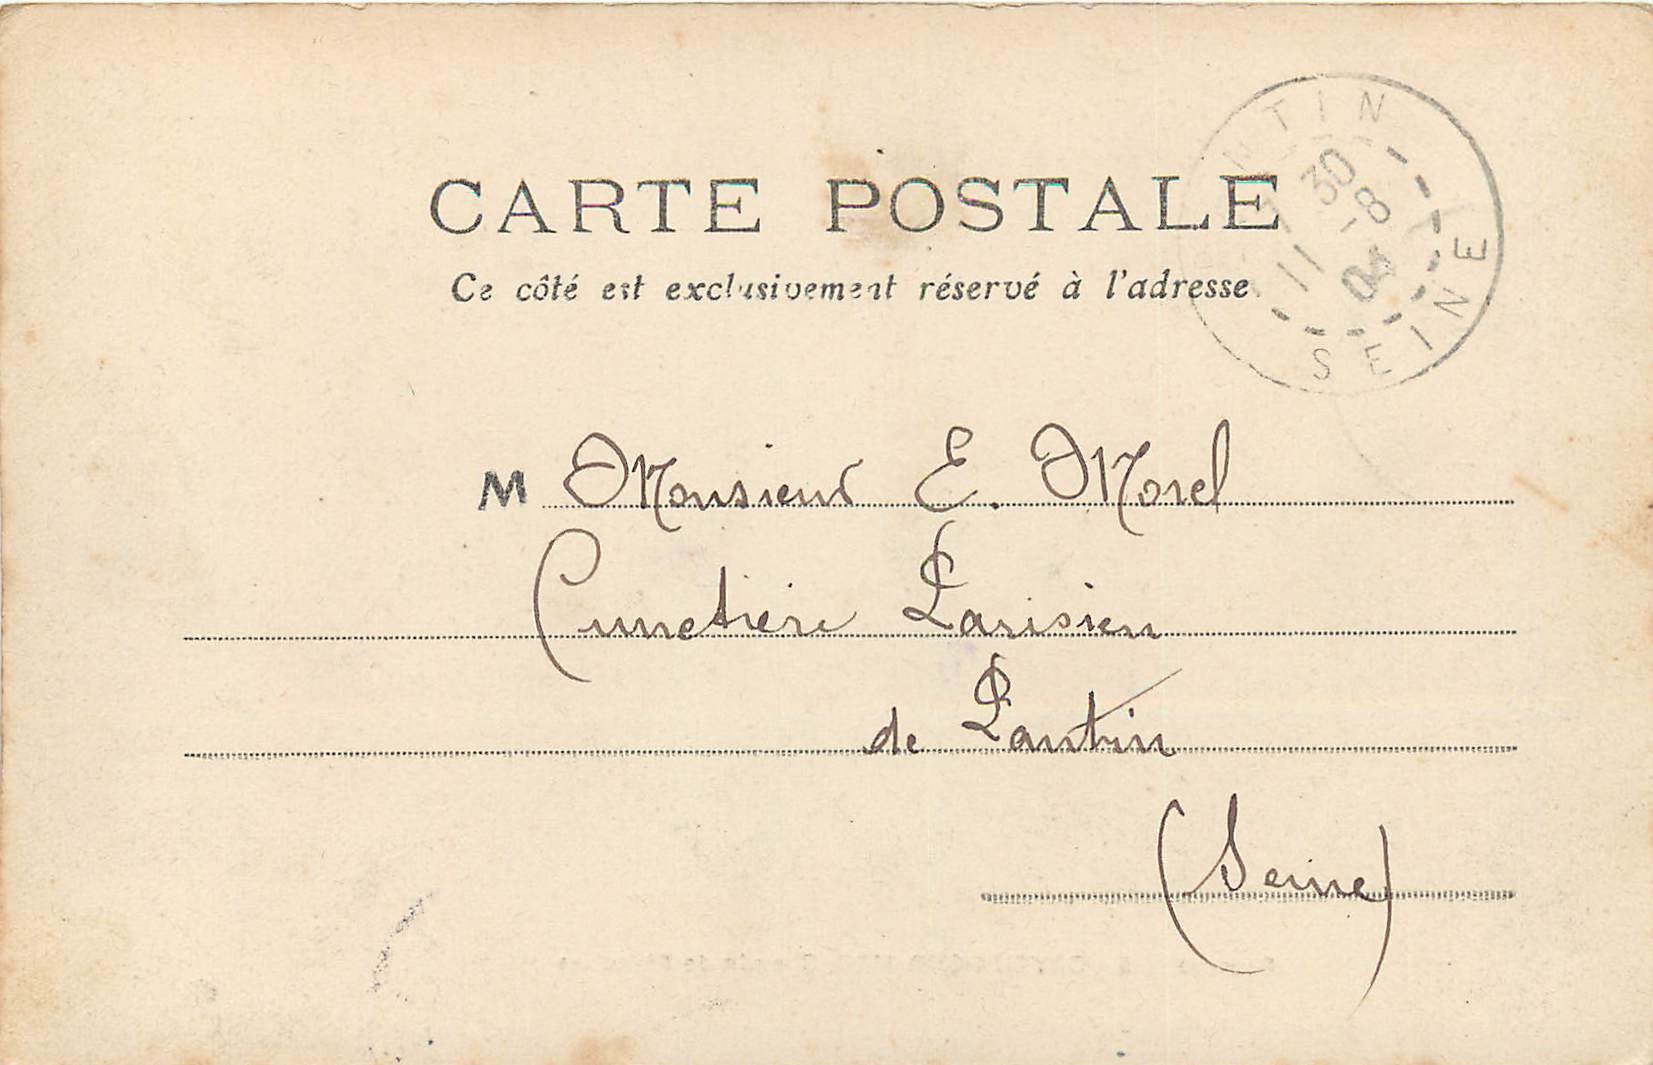 CARTE POSTALE
Ce côté est exclusivement réservé à l'adresse
NTIN
11 30
-8
SEINE
M Monsieur E. Morel
Cimetière Parisien
de Pantin
(Seine)